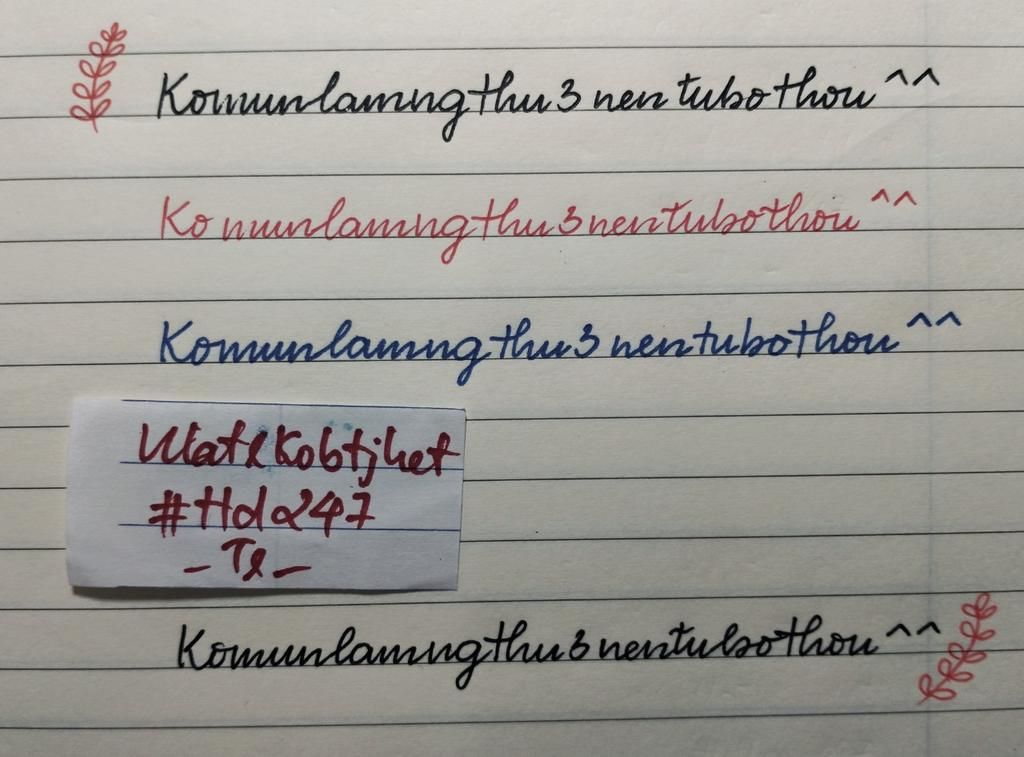 Komunlamngthu3 nen tubothou ^^
Ko nunlamngthu3nentubothou ^^
Komunlamngthu3 nentubothou ^^
#Hdα247
Komunlamngthu3nentubothou ^^